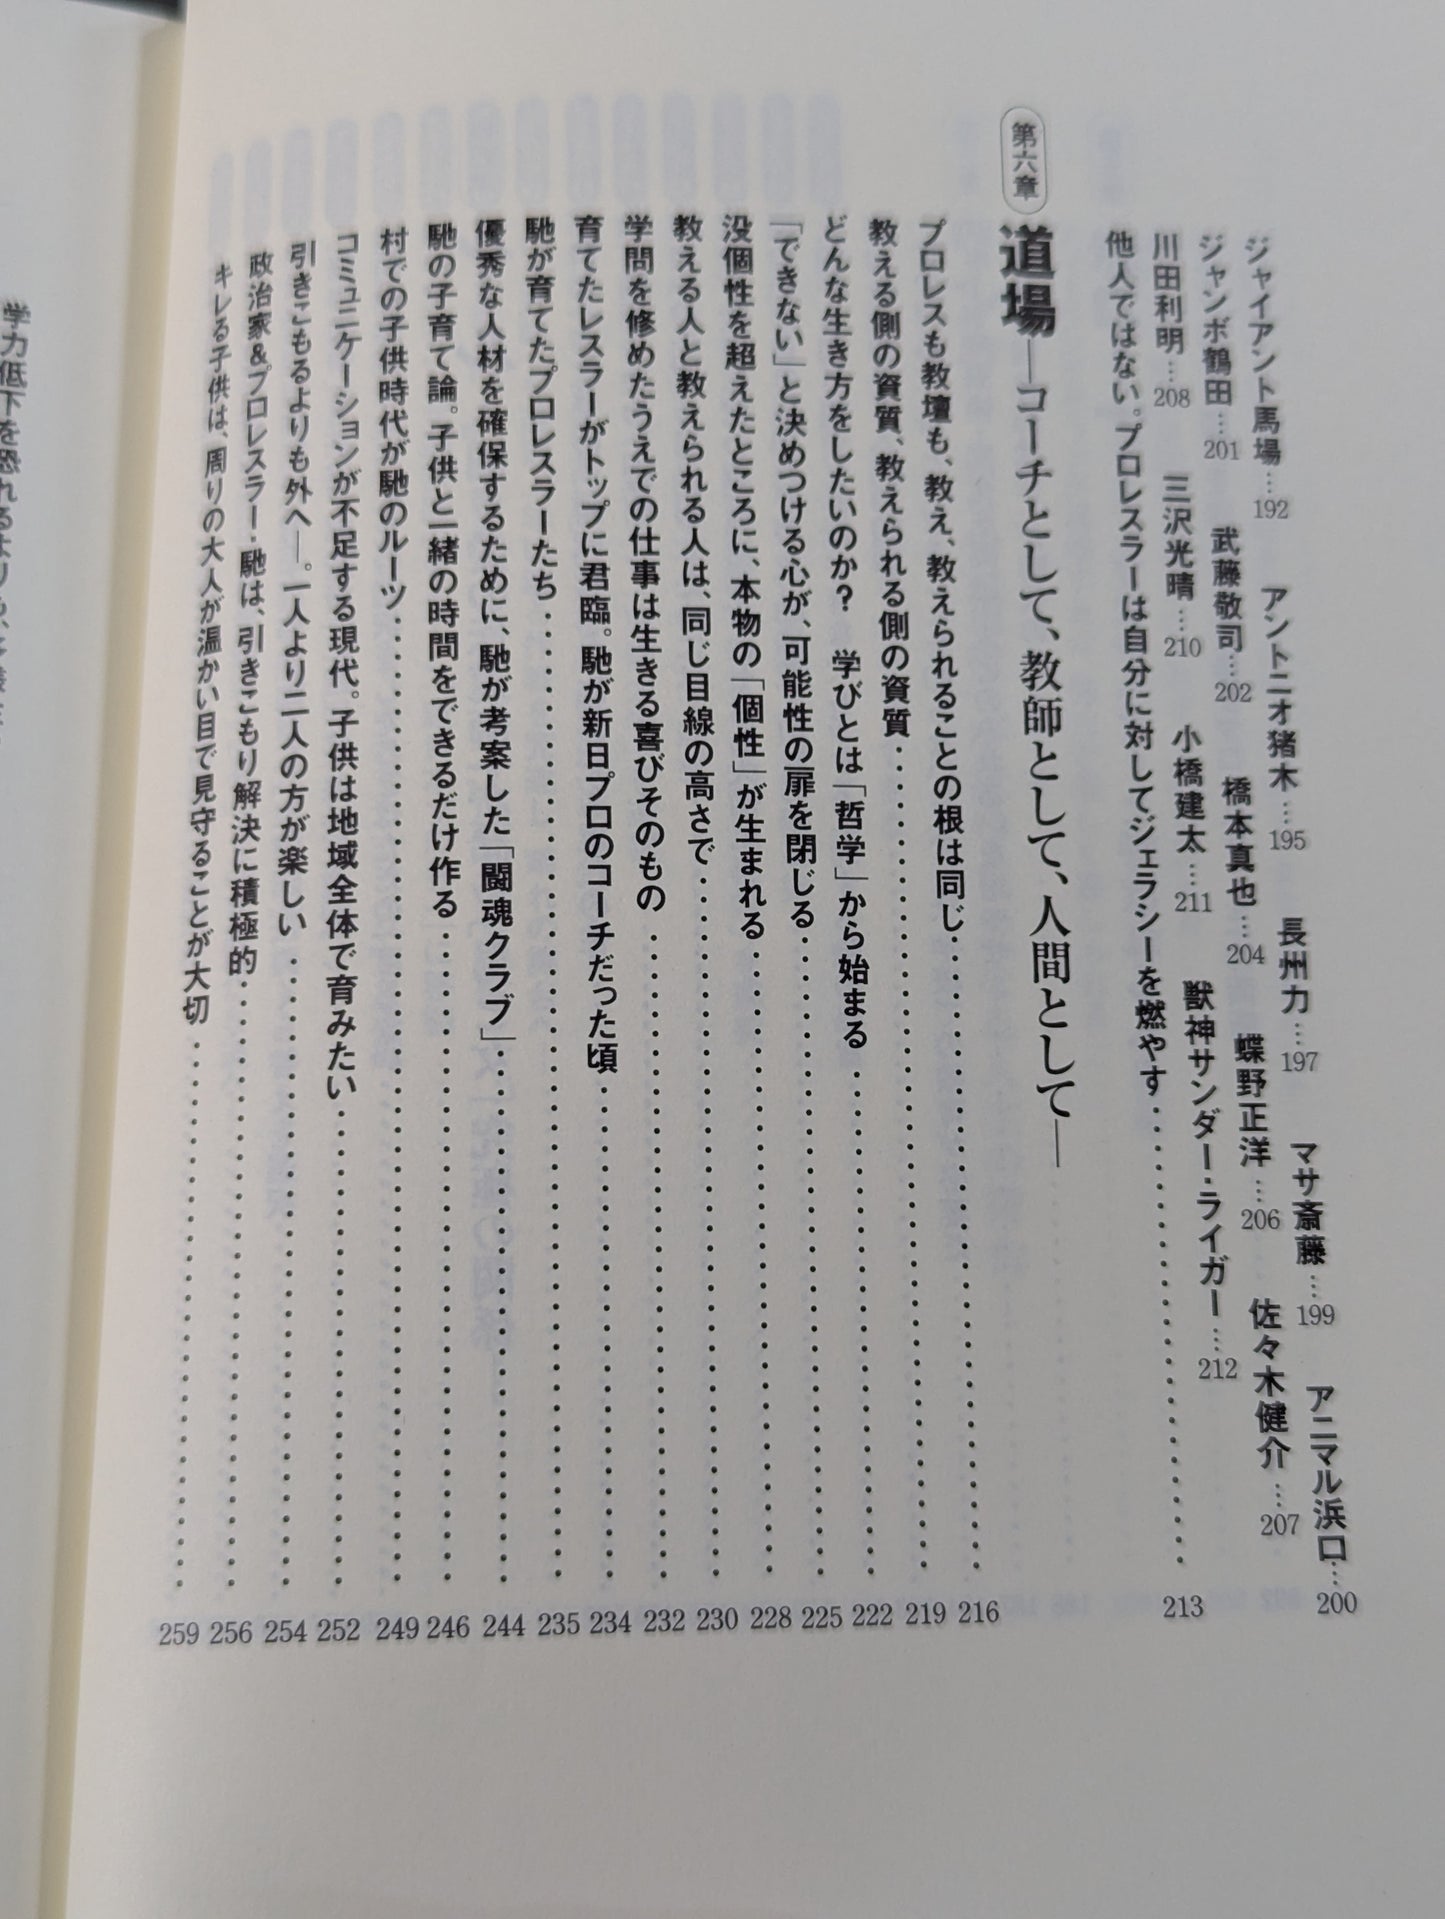 ジャイアント馬場…192　アントニオ猪木…195　長州力…197　マサ斎藤…199　アニマル浜口…200
ジャンボ鶴田…201　武藤敬司…202　橋本真也…204　蝶野正洋…206　佐々木健介…207
川田利明…208　三沢光晴…210　小橋建太…211　獣神サンダー・ライガー…212
他人ではない。プロレスラーは自分に対してジェラシーを燃やす……213
第六章 道場―コーチとして、教師として、人間として―
プロレスも教壇も、教え、教えられることの根は同じ……216
教える側の資質、教えられる側の資質……219
どんな生き方をしたいのか?　学びとは「哲学」から始まる……222
「できない」と決めつける心が、可能性の扉を閉じる……225
没個性を超えたところに、本物の「個性」が生まれる……228
教える人と教えられる人は、同じ目線の高さで……230
学問を修めたうえでの仕事は生きる喜びそのもの……232
育てたレスラーがトップに君臨。馳が新日プロのコーチだった頃……234
馳が育てたプロレスラーたち……235
優秀な人材を確保するために、馳が考案した「闘魂クラブ」……244
馳の子育て論。子供と一緒の時間をできるだけ作る……246
村での子供時代が馳のルーツ……249
コミュニケーションが不足する現代。子供は地域全体で育みたい……252
引きこもるよりも外へ―。一人より二人の方が楽しい……254
政治家&プロレスラー・馳は、引きこもり解決に積極的……256
キレる子供は、周りの大人が温かい目で見守ることが大切……259
学力低下を恐れるより